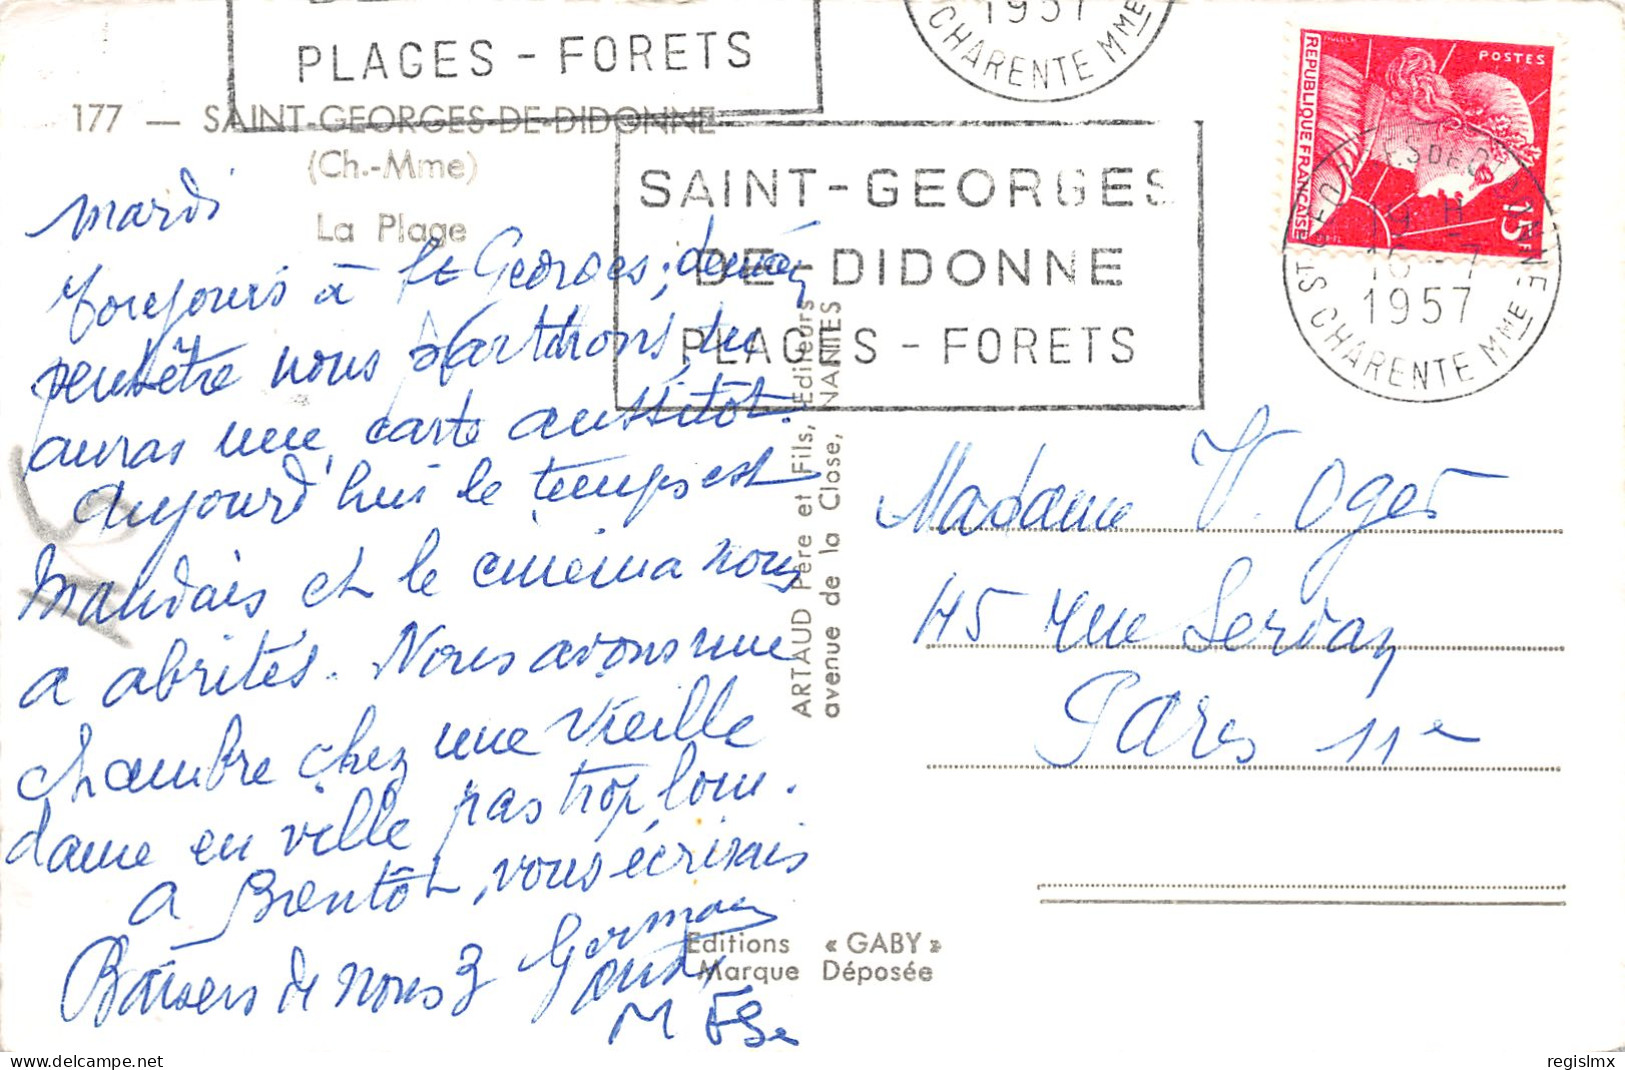 PLAGES - FORETS
1957
CHARENTE Mme
177 — SAINT-GEORGES-DE-DIDONNE
(Ch.-Mme)
La Plage
SAINT-GEORGES
DE-DIDONNE
PLAGES - FORETS
POSTES
REPUBLIQUE FRANÇAISE
15F
1957
CHARENTE Mme
mardi
Toujours à St Georges, demain
peut-être nous partirons, tu
auras une carte aussitôt.
Aujourd'hui le temps est
mauvais et le cinéma nous
a abrités. Nous avons une
chambre chez une vieille
dame en ville pas trop loin.
A Bientôt, vous écrirais
Baisers de nous 3 Germain
M
ARTAUD Père et Fils, Editeurs
avenue de la Close, NANTES
Madame V. Oger
145 rue Servan
Paris 11e
Editions « GABY »
Marque Déposée
regislmx